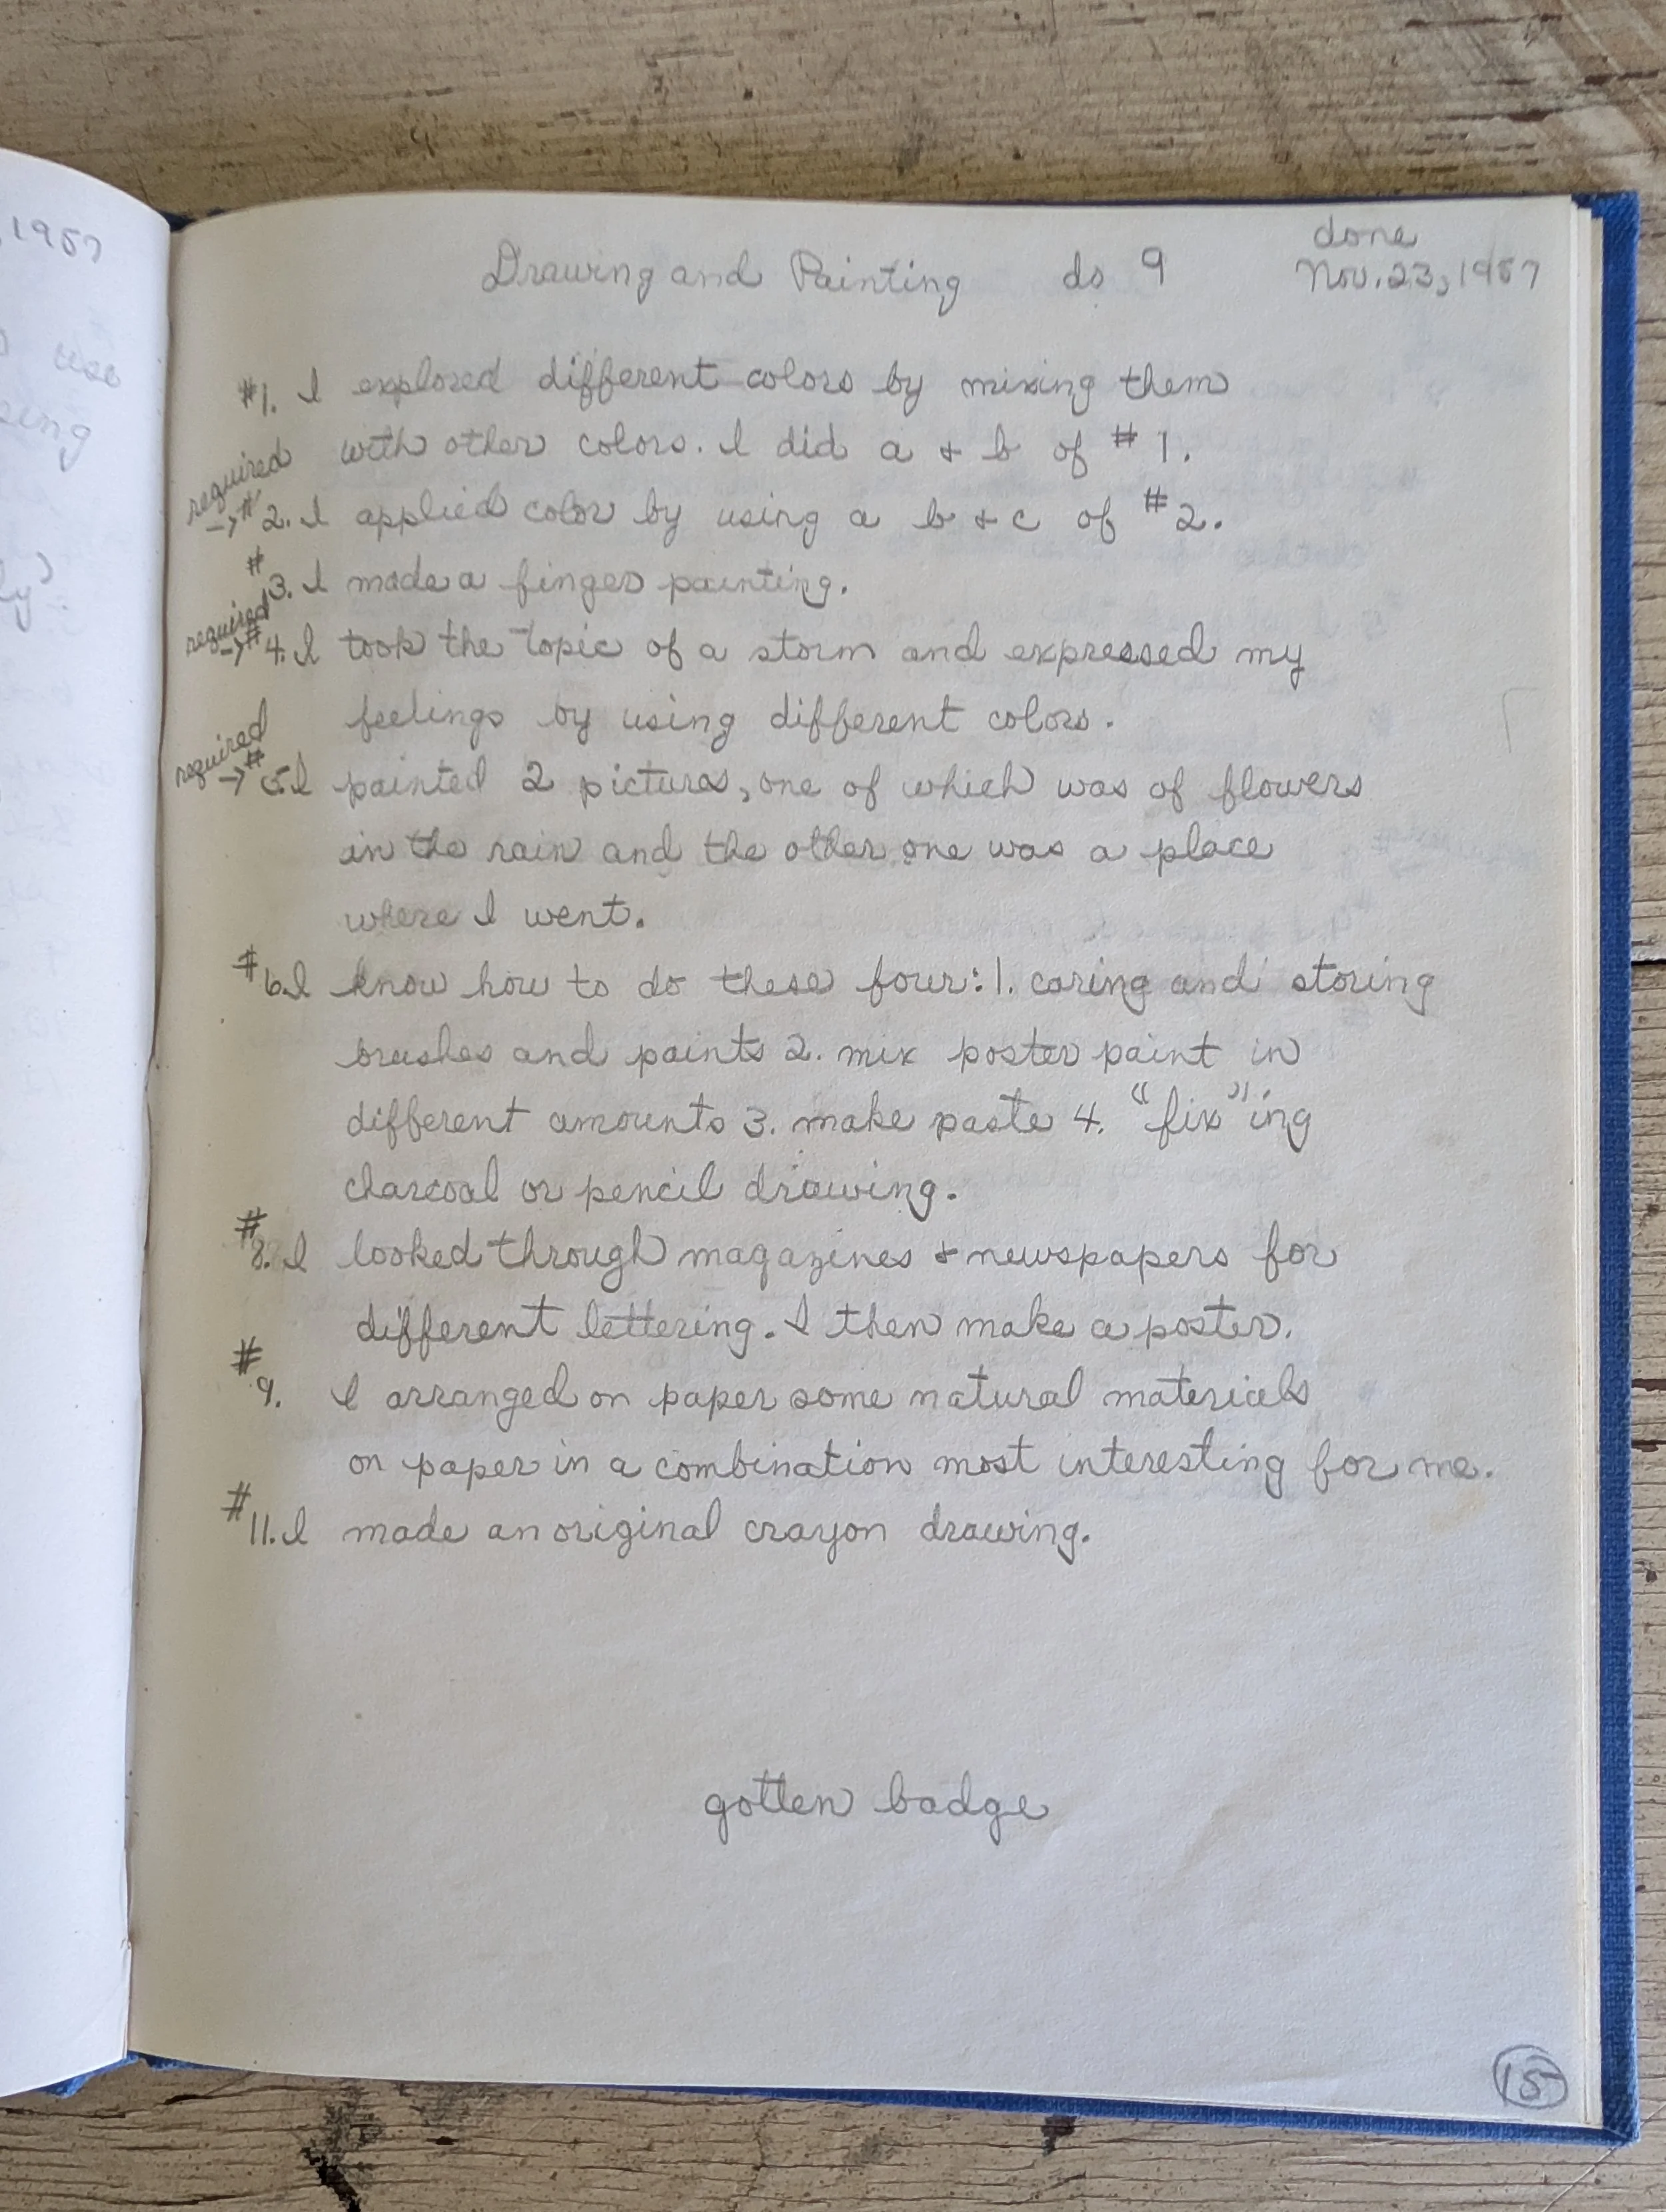 , 1957
use
sing
ly)
done
Drawing and Painting do 9 Nov. 23, 1957
#1. I explored different colors by mixing them
with other colors. I did a & b of #1.
required
→ #2. I applied color by using a b & c of #2.
#3. I made a finger painting.
required
→ #4. I took the topic of a storm and expressed my
feelings by using different colors.
required
→ #5. I painted 2 pictures, one of which was of flowers
in the rain and the other one was a place
where I went.
#6. I know how to do these four: 1. caring and storing
brushes and paints 2. mix poster paint in
different amounts 3. make paste 4. "fix"ing
charcoal or pencil drawing.
#8. I looked through magazines & newspapers for
different lettering. I then make a poster.
#9. I arranged on paper some natural materials
on paper in a combination most interesting for me.
#11. I made an original crayon drawing.
gotten badge
15